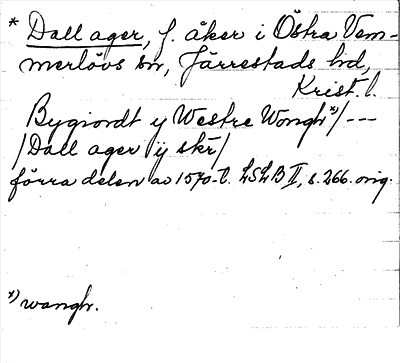 * Dall ager, f. åker i Östra Vem-
merlövs sn, Järrestads hd,
Krist. l.
Bygiordt y Westre Wongh *)/---
/Dall ager ÿ skr/
förra delen av 1570-t. LSLB II, s. 266. orig.
*) wangh.